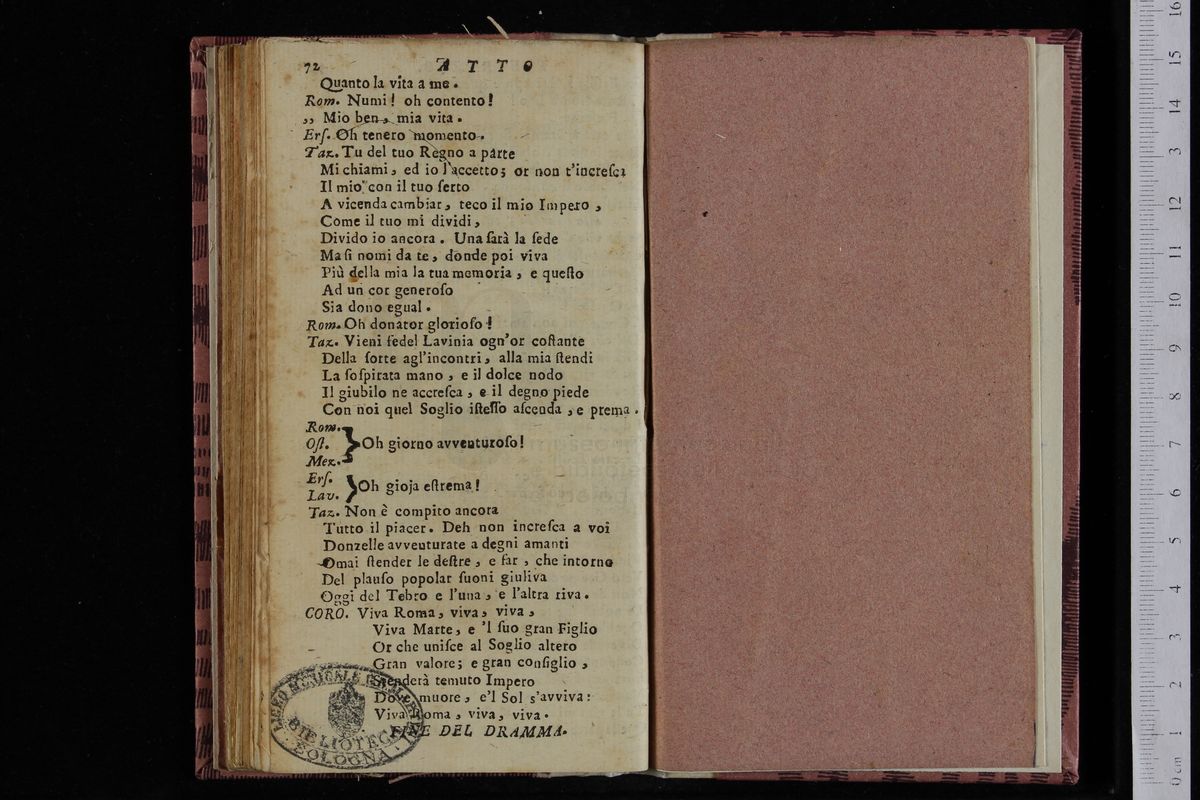 72 ATTO
Quanto la vita a me.
Rom. Numi! oh contento!
,, Mio ben, mia vita.
Erſ. Oh tenero momento.
Taz. Tu del tuo Regno a parte
Mi chiami, ed io l'accetto; or non t'increſca
Il mio con il tuo ſerto
A vicenda cambiar, teco il mio Impero,
Come il tuo mi dividi,
Divido io ancora. Una ſarà la ſede
Ma ſi nomi da te, donde poi viva
Più della mia la tua memoria, e queſto
Ad un cor generoſo
Sia dono egual.
Rom. Oh donator glorioſo!
Taz. Vieni fedel Lavinia ogn'or coſtante
Della ſorte agl'incontri, alla mia ſtendi
La ſoſpirata mano, e il dolce nodo
Il giubilo ne accreſca, e il degno piede
Con noi quel Soglio iſteſſo aſcenda, e prema.
Rom.
Oſt. Oh giorno avventuroſo!
Mez.
Erſ.
Lav. Oh gioja eſtrema!
Taz. Non è compito ancora
Tutto il piacer. Deh non increſca a voi
Donzelle avventurate a degni amanti
Omai ſtender le deſtre, e far, che intorno
Del plauſo popolar ſuoni giuliva
Oggi del Tebro e l'una, e l'altra riva.
CORO. Viva Roma, viva, viva,
Viva Marte, e 'l ſuo gran Figlio
Or che uniſce al Soglio altero
Gran valore; e gran conſiglio,
Stenderà temuto Impero
Dove muore, e'l Sol s'avviva:
Viva Roma, viva, viva.
FINE DEL DRAMMA.
LICEO MUSICALE
BIBLIOTECA
BOLOGNA
0 cm 1 2 3 4 5 6 7 8 9 10 11 12 3 14 15 16